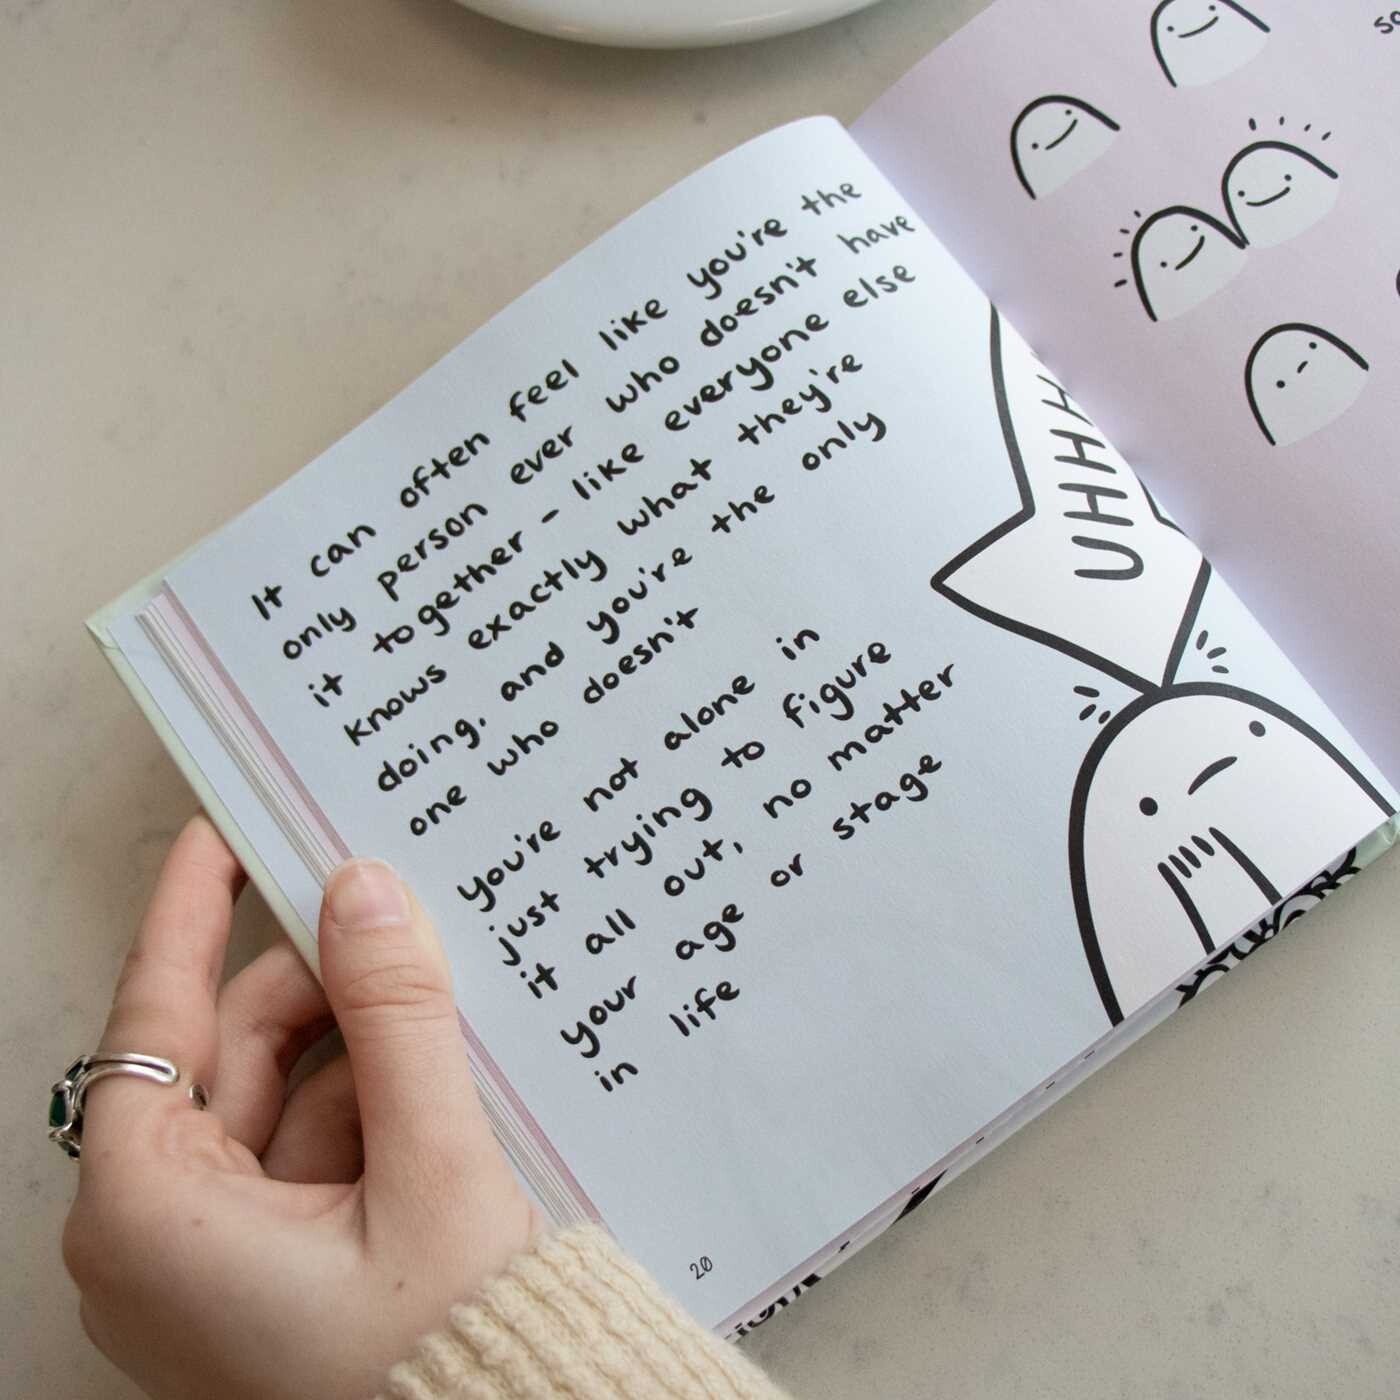 It can often feel like you're the
only person ever who doesn't have
it together - like everyone else
knows exactly what they're
doing, and you're the only
one who doesn't
You're not alone in
just trying to figure
it all out, no matter
your age or stage
in life
UHHH
20